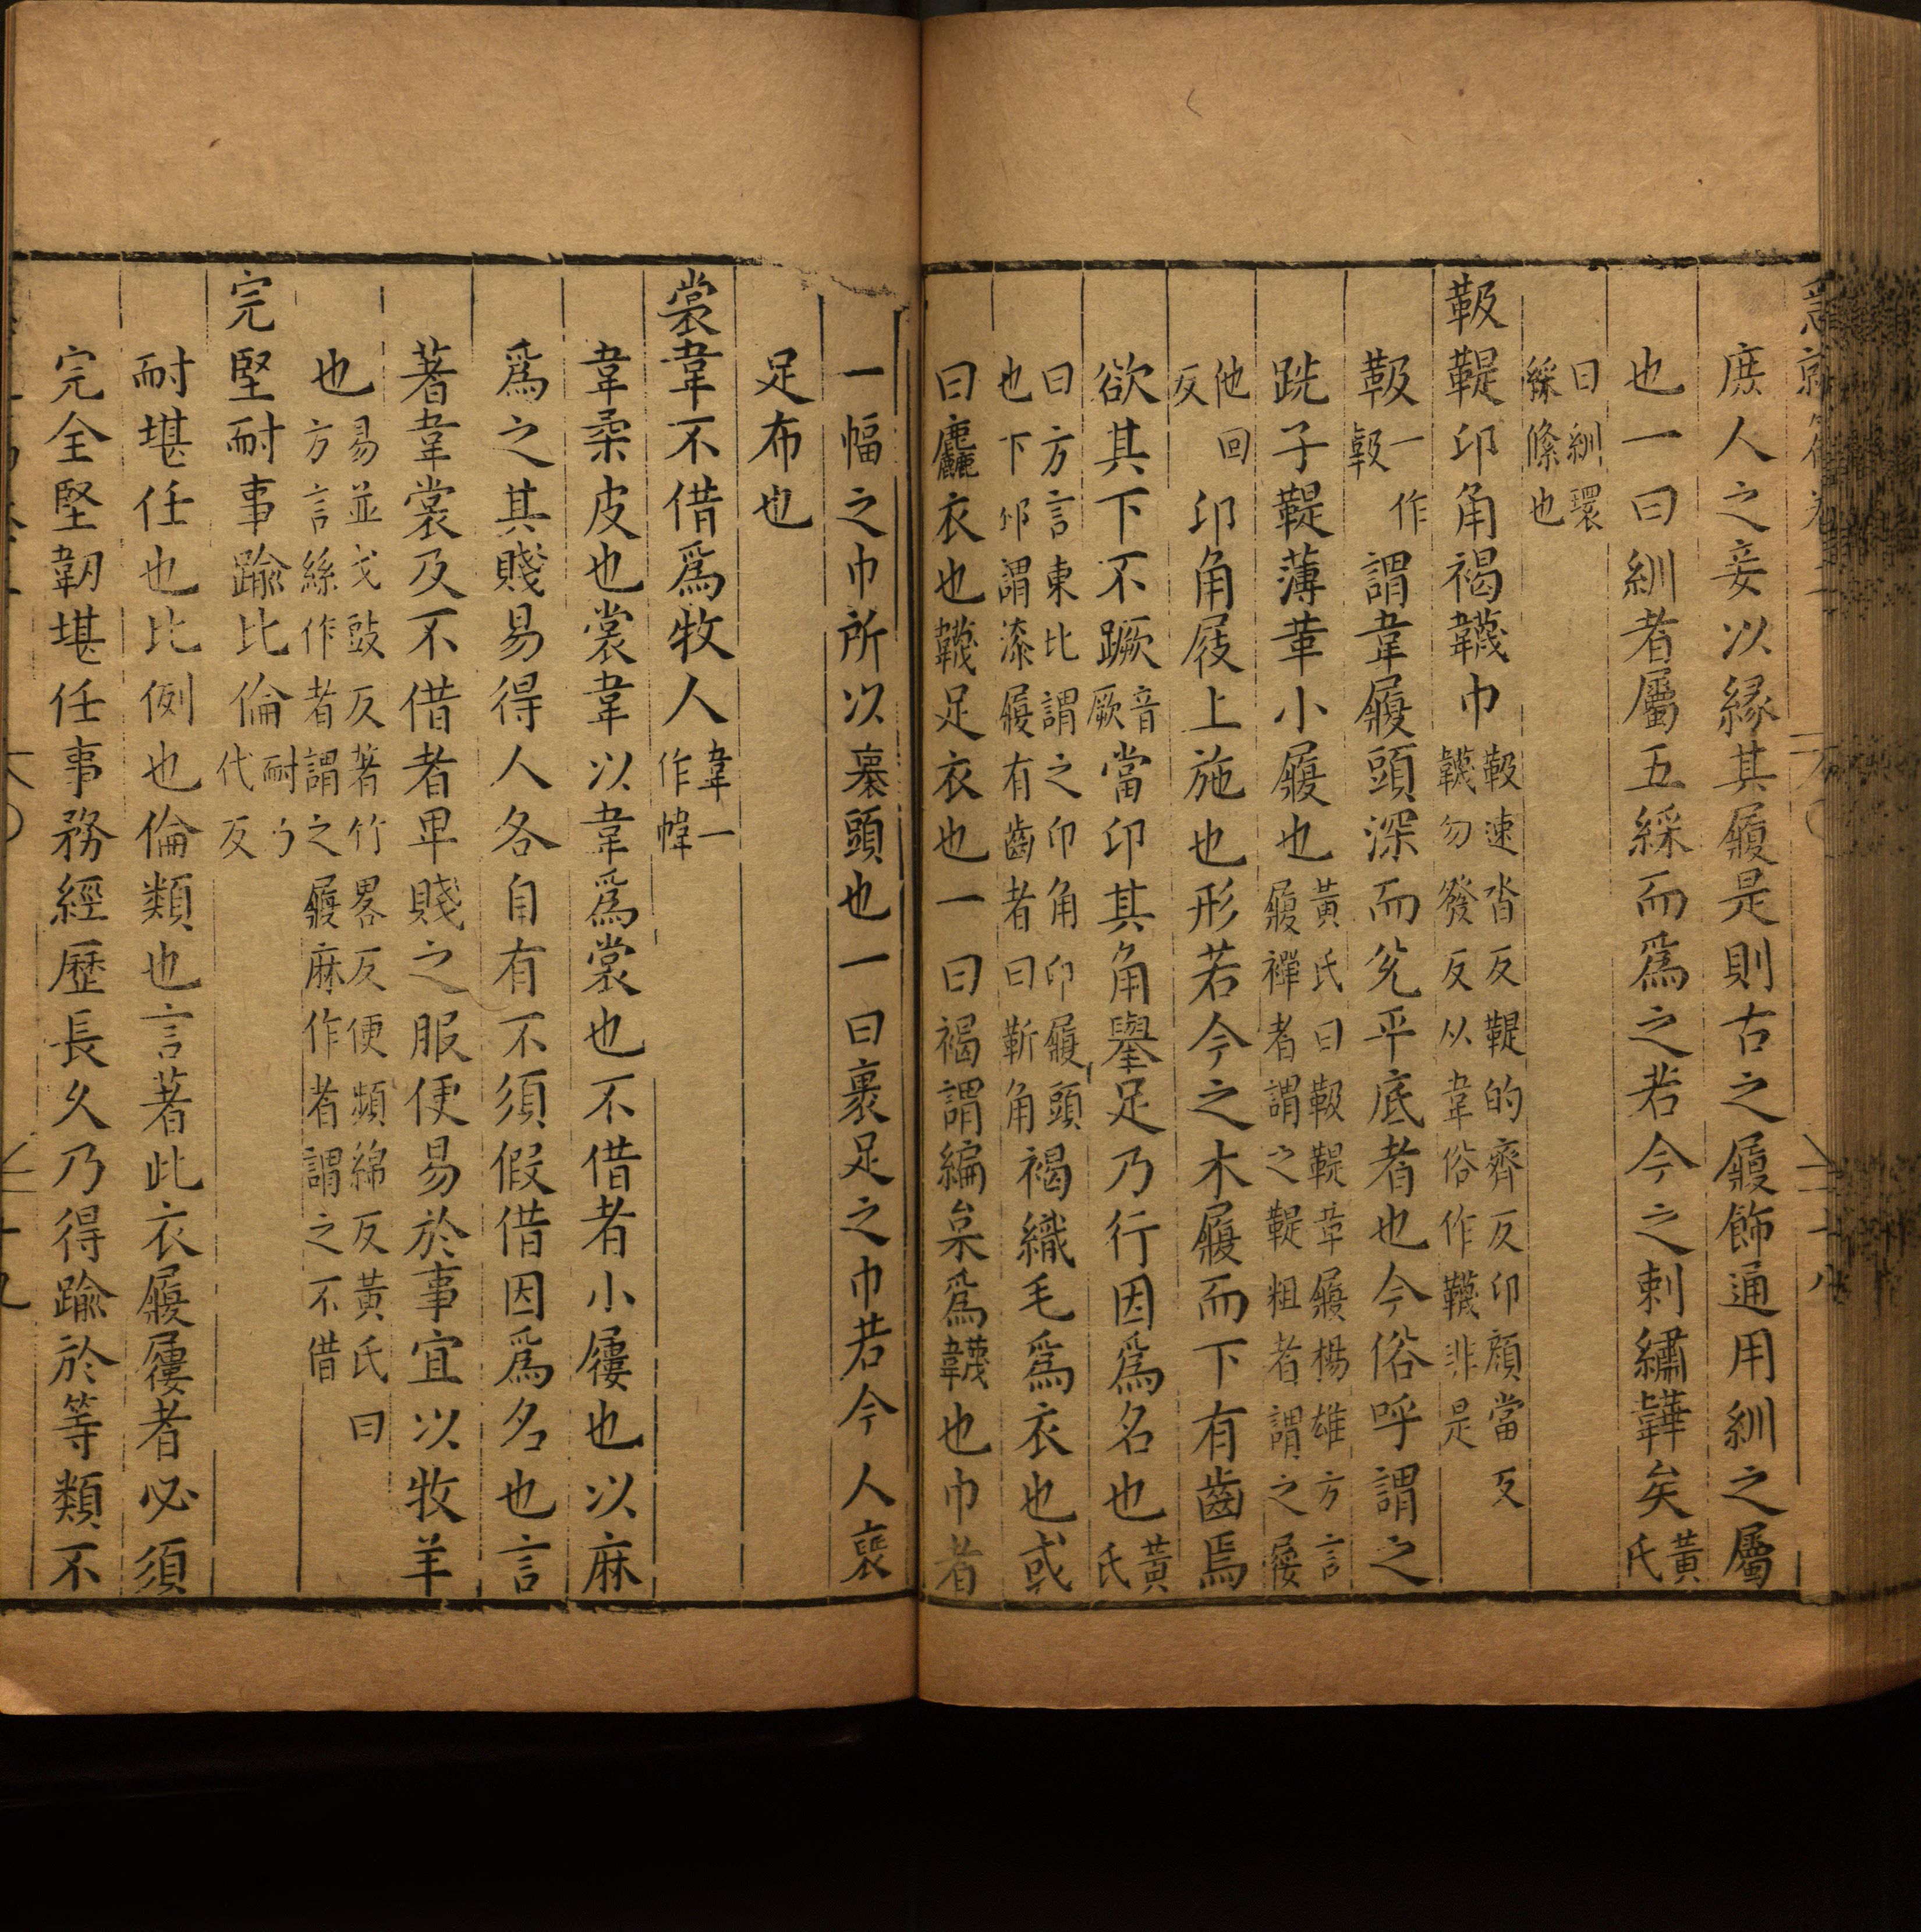 庶人之妾以縁其履是則古之履飾通用紃之屬
也一曰紃者屬五綵而爲之若今之刺繡鞾矣黃氏
曰紃環綵絛也
靸鞮卬角褐韤巾靸速沓反鞮的齊反卬顔當反韤勿發反从韋俗作韈非是
靸一作䩐謂韋履頭深而兊平底者也今俗呼謂之
跣子鞮薄革小履也黃氏曰靸鞮韋履楊雄方言履襌者謂之鞮粗者謂之屨
他回反卬角屐上施也形若今之木履而下有齒焉
欲其下不蹶音厥當卬其角舉足乃行因爲名也黃氏
曰方言東北謂之卬角卬履頭也下邠謂漆履有齒者曰靳角褐織毛爲衣也或
曰麤衣也韤足衣也一曰褐謂編枲爲韤也巾者
一幅之巾所以裹頭也一曰裹足之巾若今人裹
足布也
裳韋不借爲牧人韋一作幃
韋柔皮也裳韋以韋爲裳也不借者小屨也以麻
爲之其賤易得人各自有不須假借因爲名也言
著韋裳及不借者卑賤之服便易於事宜以牧羊
也易並弋豉反著竹畧反便頻綿反黃氏曰方言絲作者謂之履麻作者謂之不借
完堅耐事踰比倫耐乃代反
耐堪任也比例也倫類也言著此衣履屨者必須
完全堅韌堪任事務經歷長久乃得踰於等類不